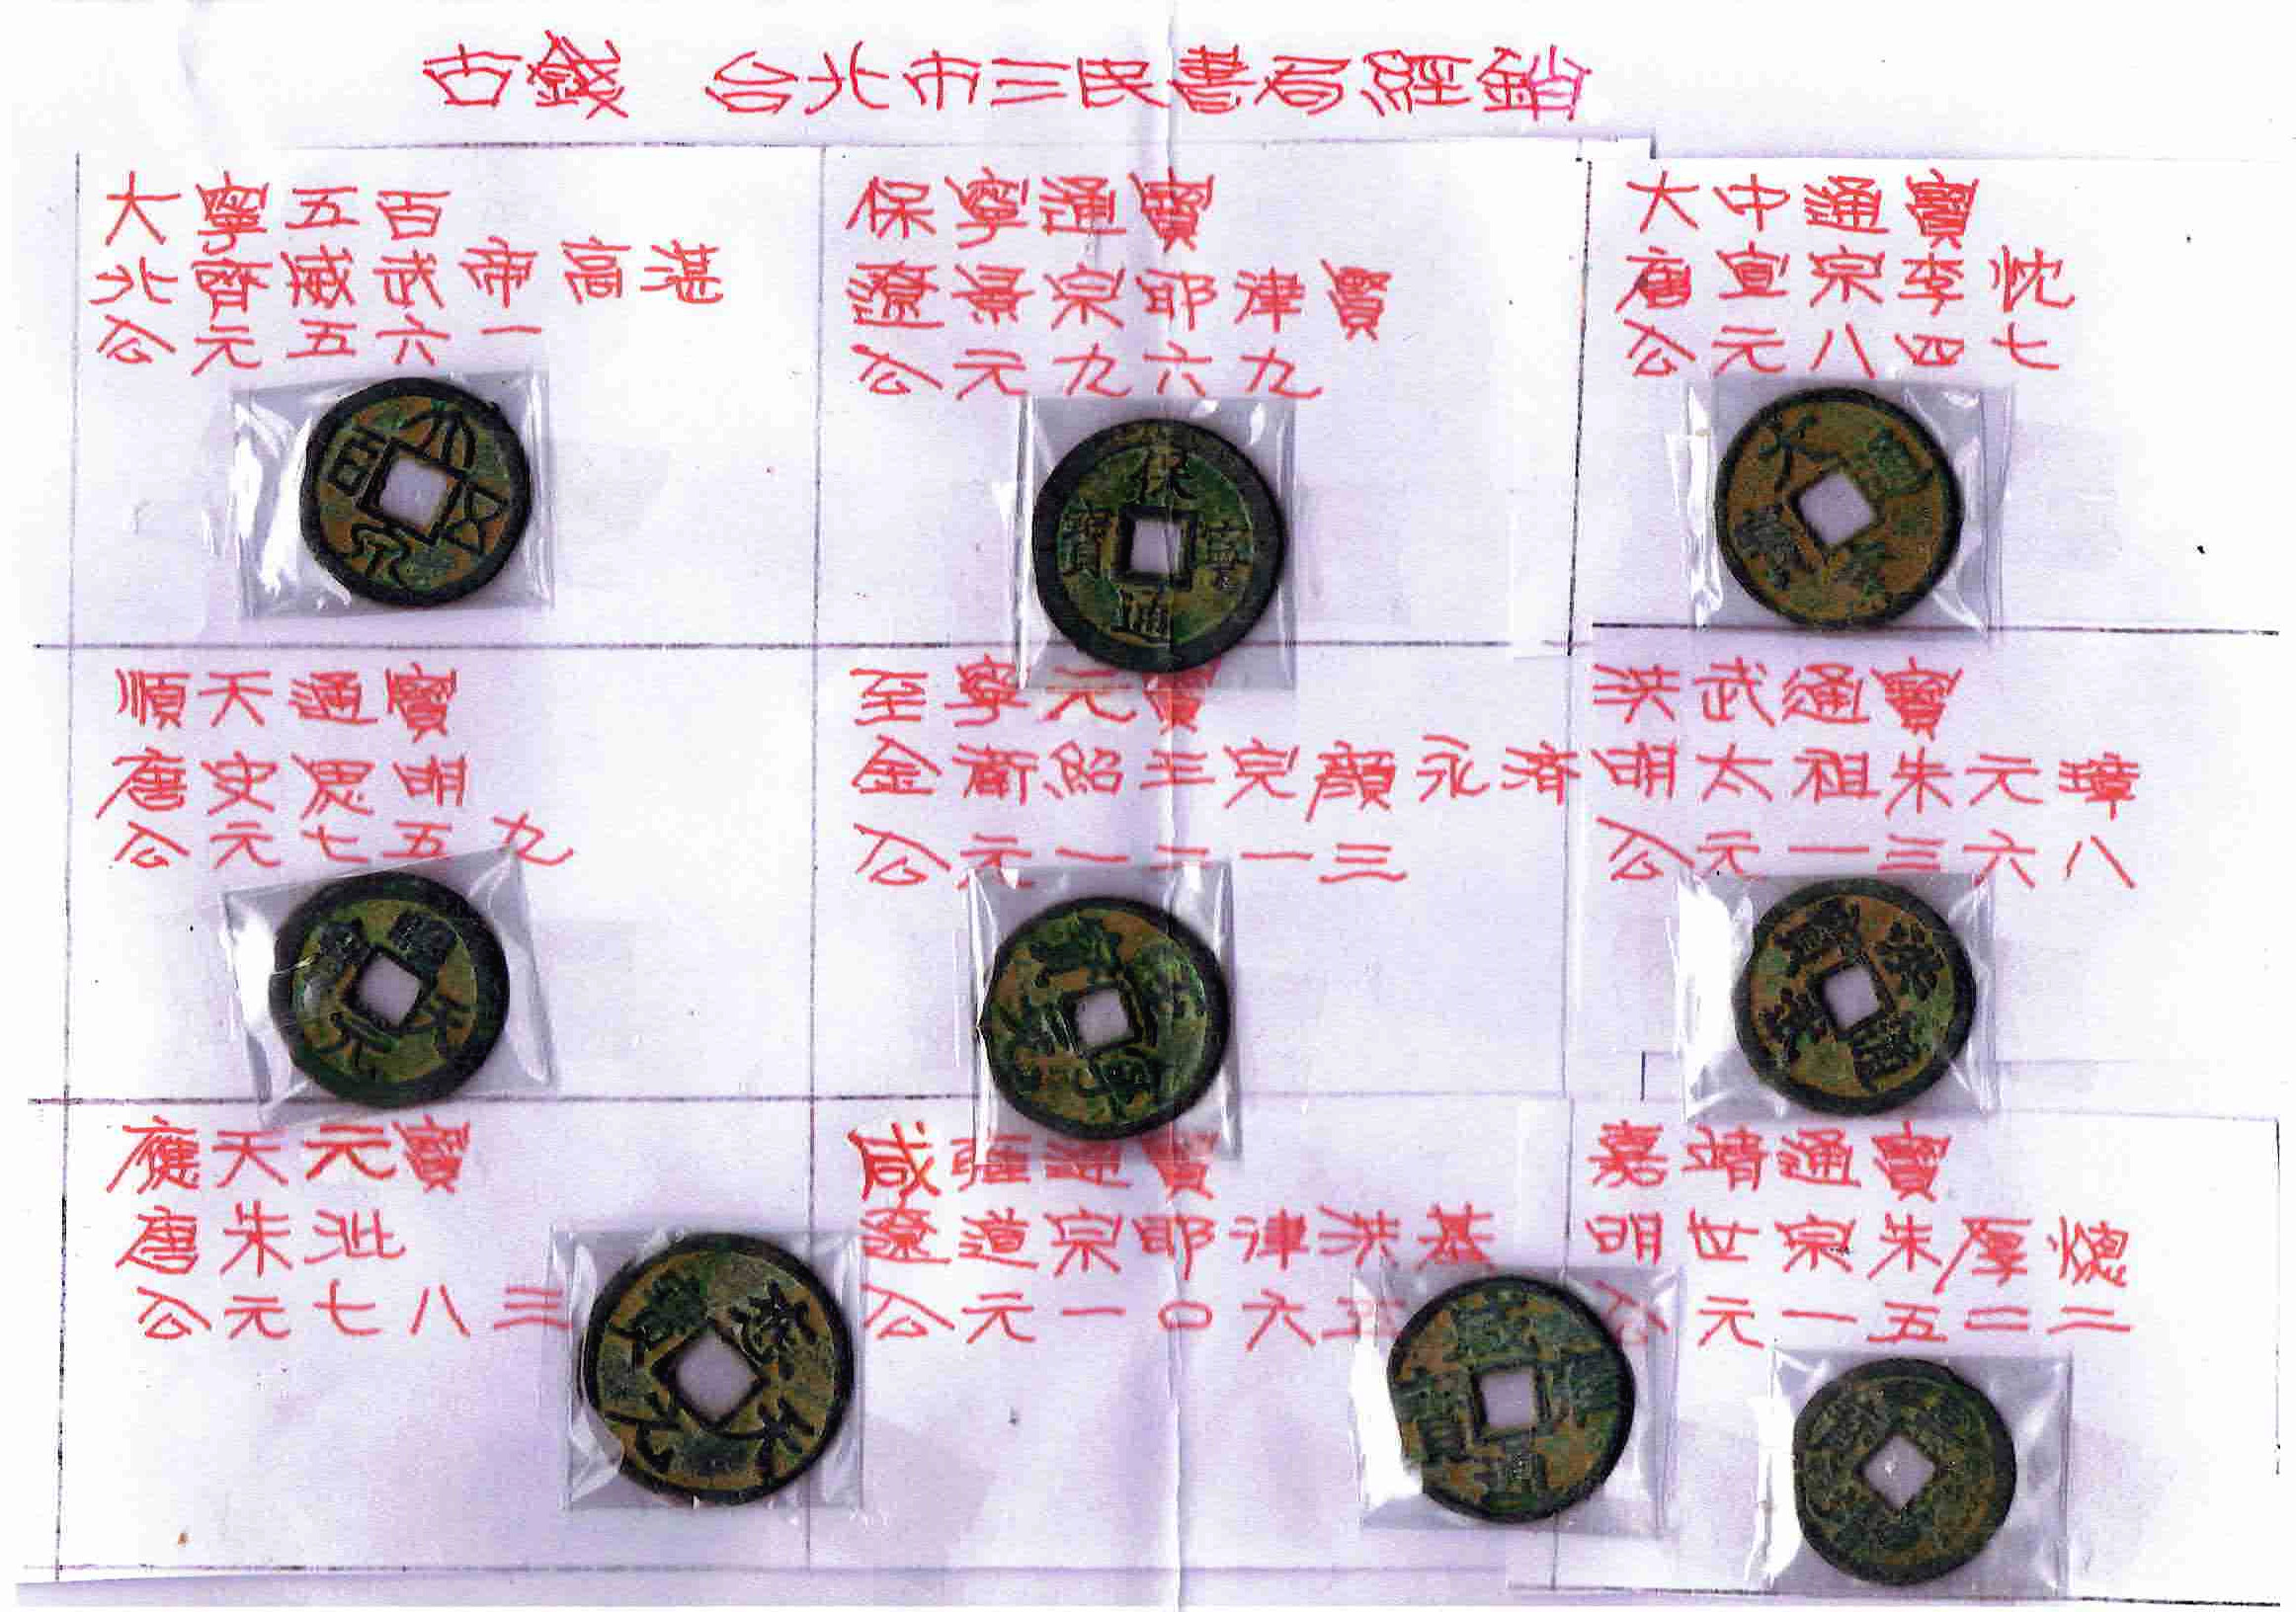 古錢 台北市三民書局經銷
大寧五百
北齊威武帝高湛
公元五六一
保寧通寶
遼景宗耶津賢
公元九六九
大中通寶
唐宣宗李忱
公元八四七
順天通寶
唐史思明
公元七五九
至寧元寶
金衛紹王完顏永濟
公元一二一三
洪武通寶
明太祖朱元璋
公元一三六八
應天元寶
唐朱泚
公元七八三
咸雍通寶
遼道宗耶津洪基
公元一〇六五
嘉靖通寶
明世宗朱厚熜
公元一五二二
保寧通寶